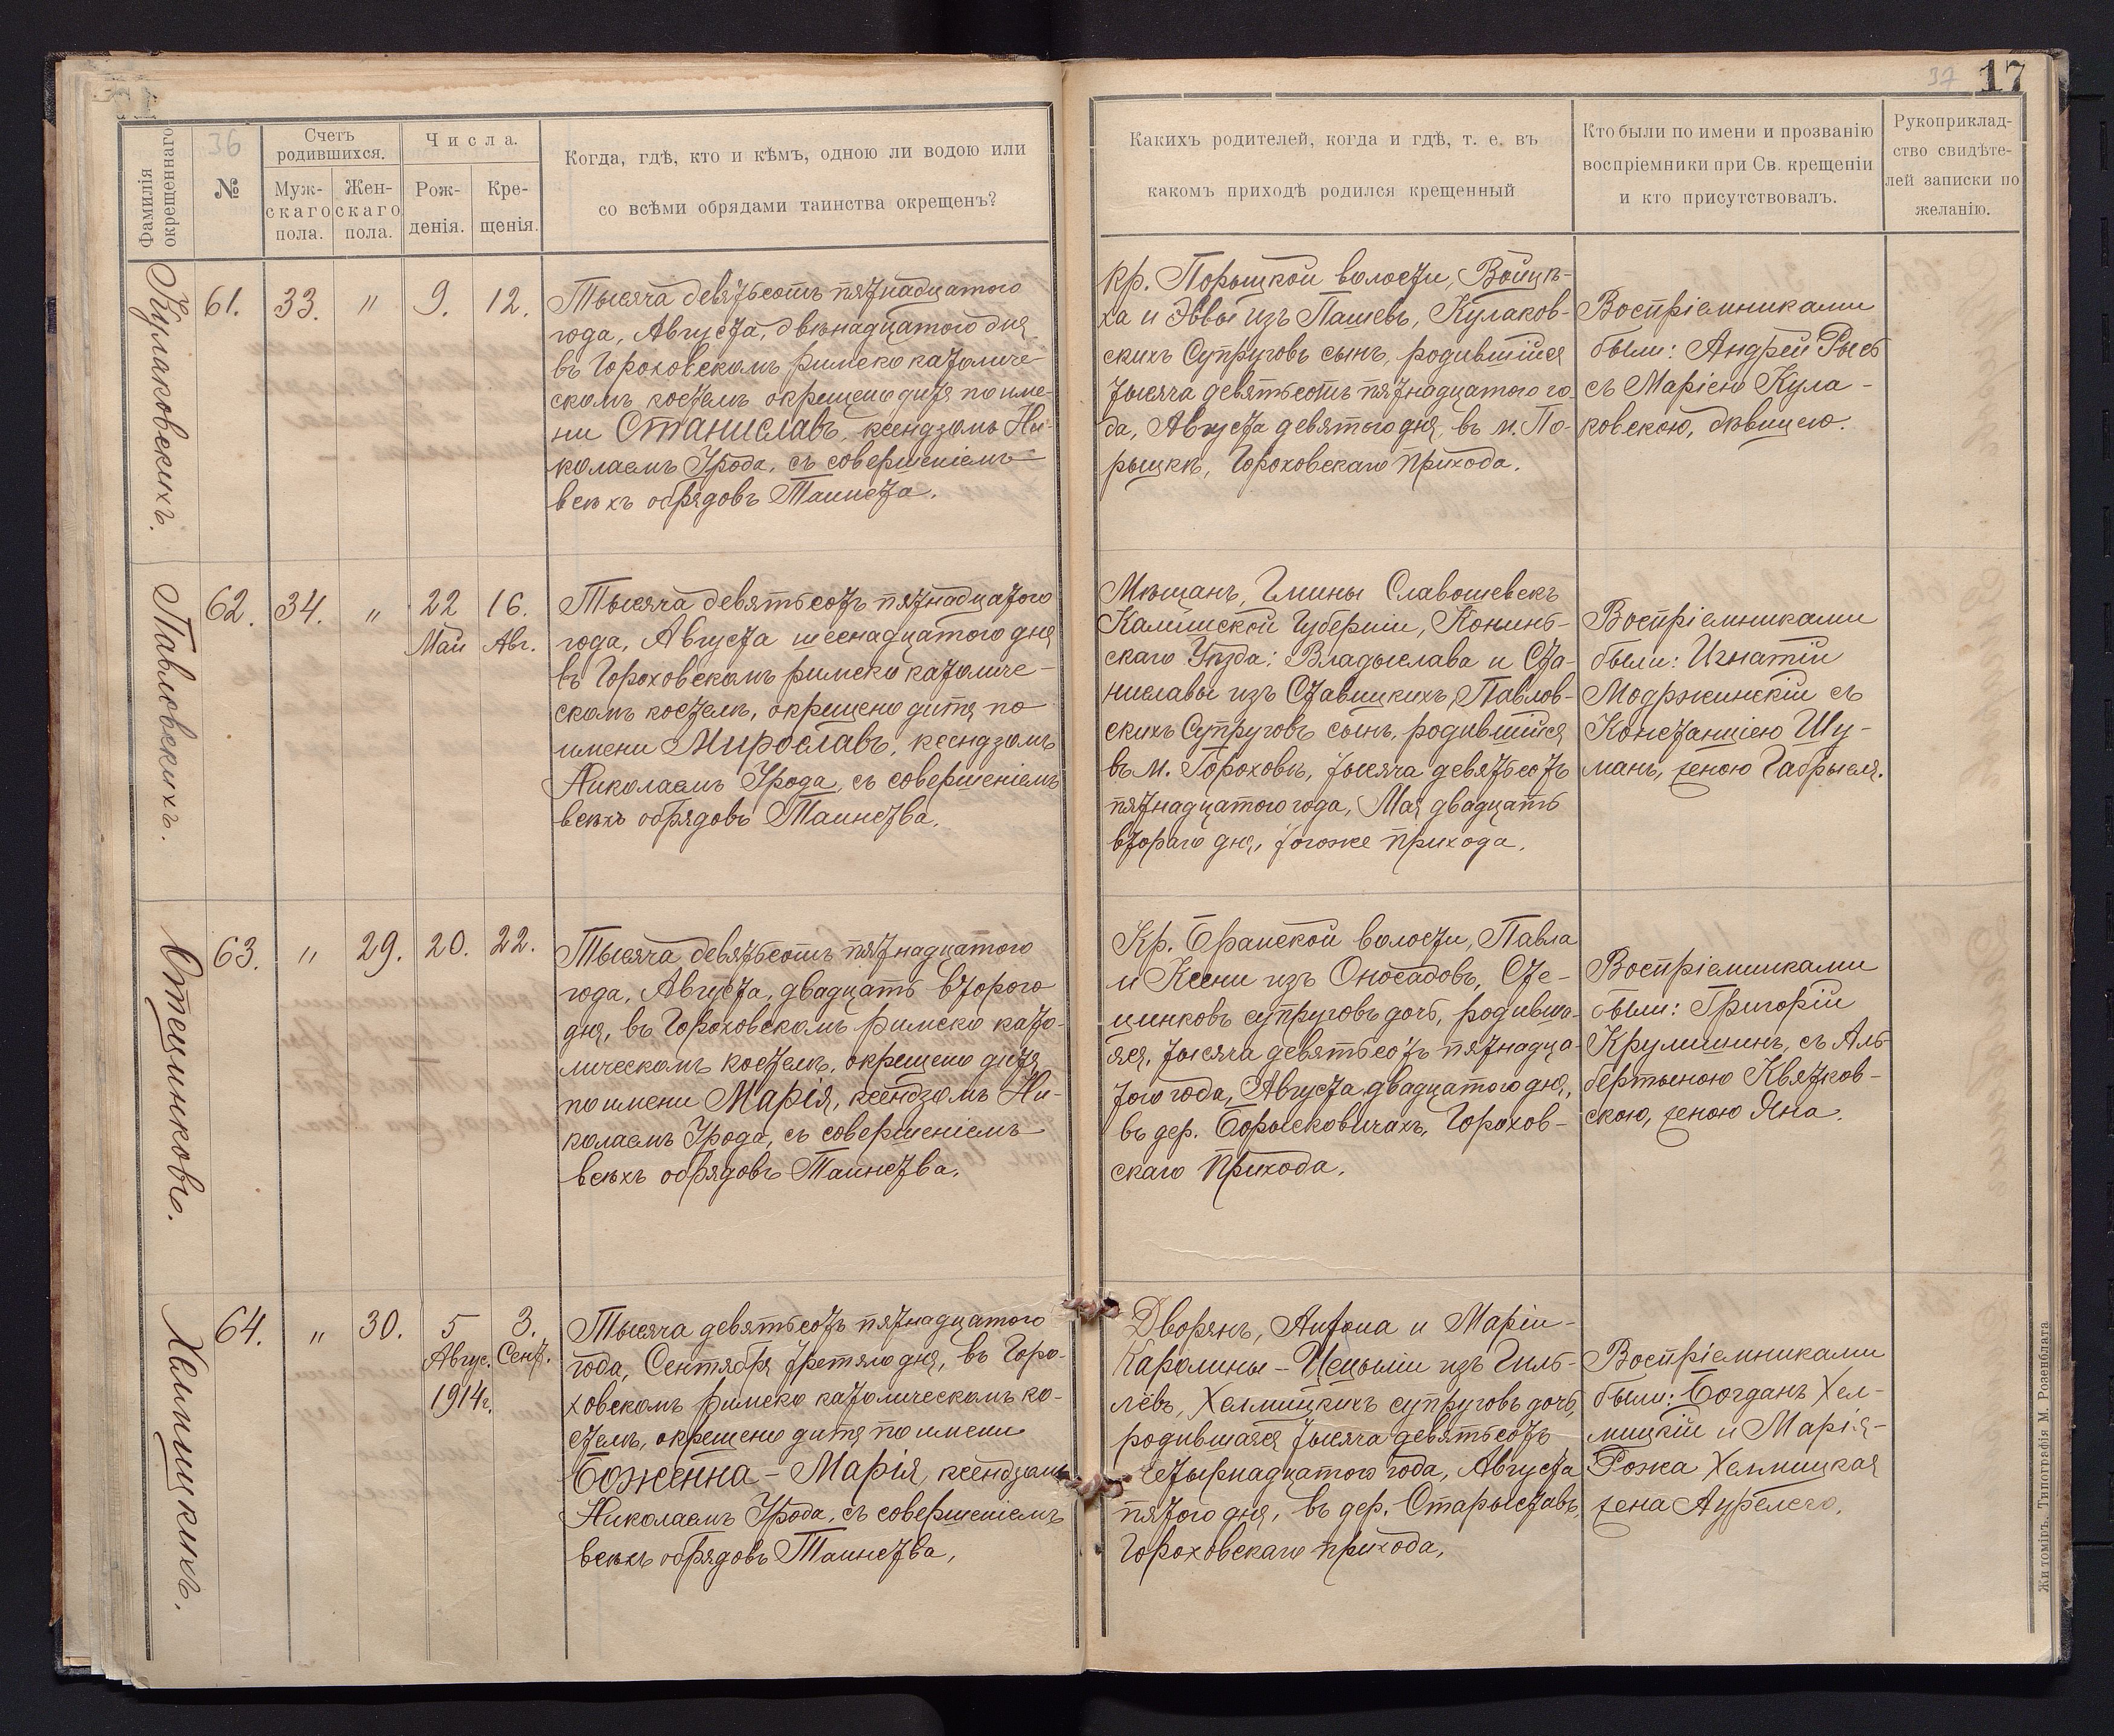 37 17
36
Фамилія
окрещеннаго
№
Счетъ
родившихся.
Муж-
скаго
пола.
Жен-
скаго
пола.
Числа.
Рож-
денія.
Кре-
щенія.
Когда, гдѣ, кто и кѣмъ, одною ли водою или
со всѣми обрядами таинства окрещенъ?
Какихъ родителей, когда и гдѣ, т. е. въ
какомъ приходѣ родился крещенный
Кто были по имени и прозванію
воспріемники при Св. крещеніи
и кто присутствовалъ.
Рукоприклад-
ство свидѣте-
лей записки по
желанію.
Кулаковскихъ.
61. 33. " 9. 12.
Тысяча девятьсотъ пятнадцатого
года, Августа, двѣнадцатого дня
въ Гороховскомъ римско католиче-
скомъ костелѣ окрещено дитя по име-
ни Станиславъ, ксендзомъ Ни-
колаемъ Урода, съ совершеніемъ
всѣхъ обрядовъ Таинста.
Кр. Порыцкой волости, Войцѣ-
ха и Эввы изъ Пашевъ, Кулаков-
скихъ Супруговъ сынъ, родившійся
тысяча девятьсотъ пятнадцатого го-
да, Августа девятого дня, въ м. По-
рыцкѣ, Гороховскаго прихода.
Воспріемниками
были: Андрей Рысь
съ Маріею Кула-
ковскою, дѣвицею.
Павловскихъ.
62. 34. " 22 16.
Май Авг.
Тысяча девятьсотъ пятнадцатого
года, Августа шеснадцатого дня
въ Гороховскомъ римско католиче-
скомъ костелѣ, окрещено дитя по
имени Мирославъ, ксендзомъ
Николаемъ Урода, съ совершеніемъ
всѣхъ обрядовъ Таинства.
Мѣщанъ, Гмины Славошевекъ
Калишской Губерніи, Конинь-
скаго Уѣзда: Владыслава и Ста-
ниславы изъ Ставицкихъ, Павлов-
скихъ Супруговъ сынъ, родившійся
въ м. Гороховѣ, тысяча девятьсотъ
пятнадцатого года, Мая двадцать
втораго дня, тогоже прихода.
Воспріемниками
были: Игнатій
Модржинскій съ
Констанціею Шу-
манъ, женою Габрыеля.
Стецинковъ.
63. " 29. 20. 22.
Тысяча девятьсотъ пятнадцатого
года, Августа, двадцать второго
дня, въ Гороховскомъ римско като-
лическомъ костелѣ, окрещено дитя
по имени Марія, ксендзомъ Ни-
колаемъ Урода, съ совершеніемъ
всѣхъ обрядовъ Таинства.
Кр. Бранской волости, Павла
и Ксени изъ Оносадовъ, Сте-
цинковъ супруговъ дочь, родивша-
яся, тысяча девятьсотъ пятнадца-
того года, Августа двадцатого дня,
въ дер. Борысковичахъ, Горохов-
скаго прихода.
Воспріемниками
были: Григорій
Крулишинъ, съ Аль-
бертыною Квятков-
скою, женою Яна.
Хелмицкихъ.
64. " 30. 5 3.
Авгус. Сент.
1914г.
Тысяча девятьсотъ пятнадцатого
года, Сентября третяго дня, въ Горо-
ховскомъ римско католическомъ ко-
стелѣ, окрещено дитя по имени
Боженна - Марія, ксендзомъ
Николаемъ Урода, съ совершеніемъ
всѣхъ обрядовъ Таинства.
Дворянъ, Антона и Маріи-
Каролины - Цецыліи изъ Гиль-
лёвъ, Хелмицкихъ супруговъ дочь,
родившаяся тысяча девятьсотъ
четырнадцатого года, Августа
пятого дня, въ дер. Старыставъ,
Гороховскаго прихода.
Воспріемниками
были: Богданъ Хел-
мицкій и Марія-
Рожа Хелмицкая
жена Аурелего.
Житоміръ. Типографія М. Розенблата